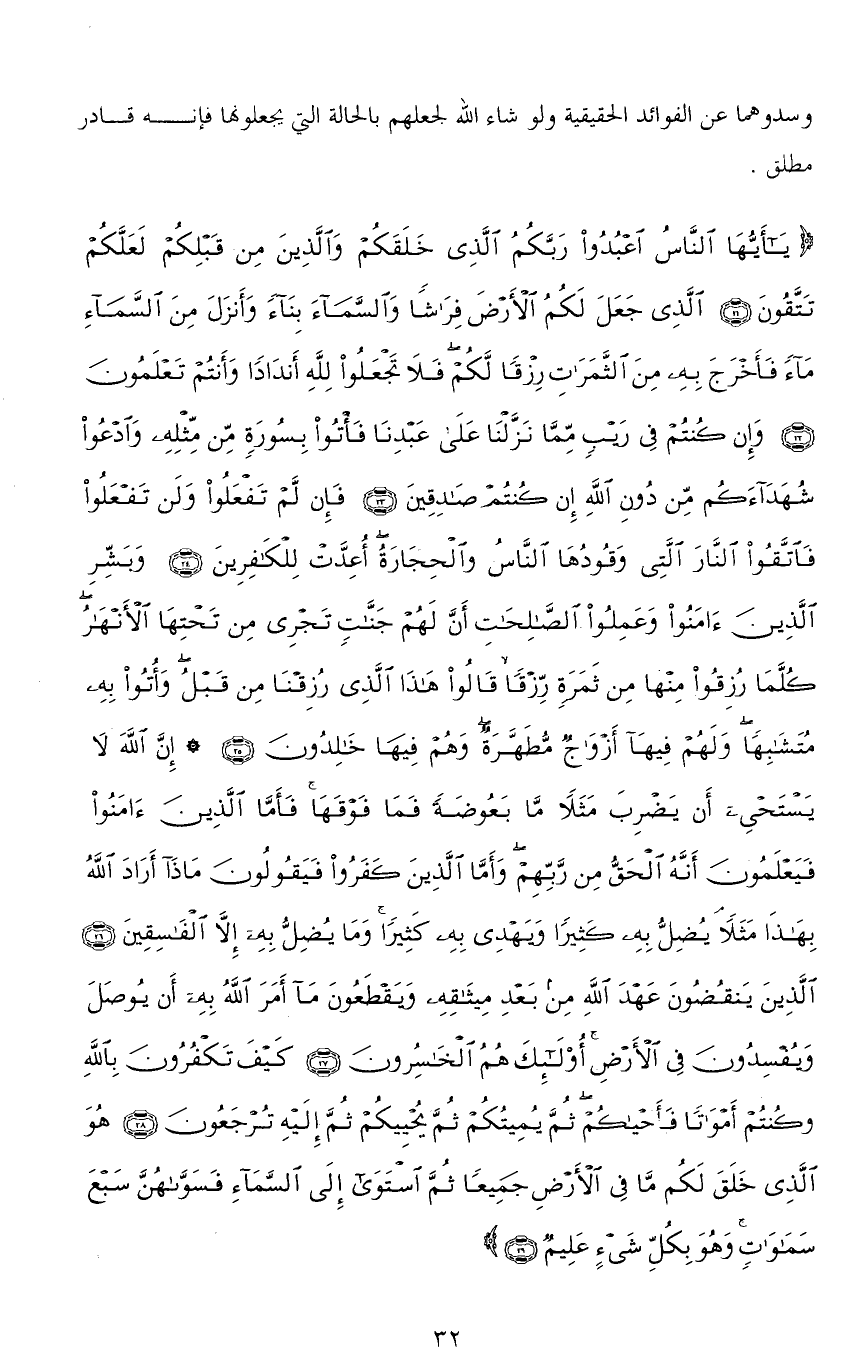 وسدوهما عن الفوائد الحقيقية ولو شاء الله لجعلهم بالحالة التي يجعلونها فإنـــه قــادر
مطلق .
﴿ يَـٰٓأَيُّهَا ٱلنَّاسُ ٱعْبُدُوا۟ رَبَّكُمُ ٱلَّذِى خَلَقَكُمْ وَٱلَّذِينَ مِن قَبْلِكُمْ لَعَلَّكُمْ
تَتَّقُونَ ٢١ ٱلَّذِى جَعَلَ لَكُمُ ٱلْأَرْضَ فِرَٰشًا وَٱلسَّمَآءَ بِنَآءً وَأَنزَلَ مِنَ ٱلسَّمَآءِ
مَآءً فَأَخْرَجَ بِهِۦ مِنَ ٱلثَّمَرَٰتِ رِزْقًا لَّكُمْ ۖ فَلَا تَجْعَلُوا۟ لِلَّهِ أَندَادًا وَأَنتُمْ تَعْلَمُونَ
٢٢ وَإِن كُنتُمْ فِى رَيْبٍ مِّمَّا نَزَّلْنَا عَلَىٰ عَبْدِنَا فَأْتُوا۟ بِسُورَةٍ مِّن مِّثْلِهِۦ وَٱدْعُوا۟
شُهَدَآءَكُم مِّن دُونِ ٱللَّهِ إِن كُنتُمْ صَـٰدِقِينَ ٢٣ فَإِن لَّمْ تَفْعَلُوا۟ وَلَن تَفْعَلُوا۟
فَٱتَّقُوا۟ ٱلنَّارَ ٱلَّتِى وَقُودُهَا ٱلنَّاسُ وَٱلْحِجَارَةُ ۖ أُعِدَّتْ لِلْكَـٰفِرِينَ ٢٤ وَبَشِّرِ
ٱلَّذِينَ ءَامَنُوا۟ وَعَمِلُوا۟ ٱلصَّـٰلِحَـٰتِ أَنَّ لَهُمْ جَنَّـٰتٍ تَجْرِى مِن تَحْتِهَا ٱلْأَنْهَـٰرُ ۖ
كُلَّمَا رُزِقُوا۟ مِنْهَا مِن ثَمَرَةٍ رِّزْقًا ۙ قَالُوا۟ هَـٰذَا ٱلَّذِى رُزِقْنَا مِن قَبْلُ ۖ وَأُتُوا۟ بِهِۦ
مُتَشَـٰبِهًا ۖ وَلَهُمْ فِيهَآ أَزْوَٰجٌ مُّطَهَّرَةٌ ۖ وَهُمْ فِيهَا خَـٰلِدُونَ ٢٥ ۞ إِنَّ ٱللَّهَ لَا
يَسْتَحْىِۦٓ أَن يَضْرِبَ مَثَلًا مَّا بَعُوضَةً فَمَا فَوْقَهَا ۚ فَأَمَّا ٱلَّذِينَ ءَامَنُوا۟
فَيَعْلَمُونَ أَنَّهُ ٱلْحَقُّ مِن رَّبِّهِمْ ۖ وَأَمَّا ٱلَّذِينَ كَفَرُوا۟ فَيَقُولُونَ مَاذَآ أَرَادَ ٱللَّهُ
بِهَـٰذَا مَثَلًا ۘ يُضِلُّ بِهِۦ كَثِيرًا وَيَهْدِى بِهِۦ كَثِيرًا ۚ وَمَا يُضِلُّ بِهِۦٓ إِلَّا ٱلْفَـٰسِقِينَ ٢٦
ٱلَّذِينَ يَنقُضُونَ عَهْدَ ٱللَّهِ مِنۢ بَعْدِ مِيثَـٰقِهِۦ وَيَقْطَعُونَ مَآ أَمَرَ ٱللَّهُ بِهِۦٓ أَن يُوصَلَ
وَيُفْسِدُونَ فِى ٱلْأَرْضِ ۚ أُو۟لَـٰٓئِكَ هُمُ ٱلْخَـٰسِرُونَ ٢٧ كَيْفَ تَكْفُرُونَ بِٱللَّهِ
وَكُنتُمْ أَمْوَٰتًا فَأَحْيَـٰكُمْ ۖ ثُمَّ يُمِيتُكُمْ ثُمَّ يُحْيِيكُمْ ثُمَّ إِلَيْهِ تُرْجَعُونَ ٢٨ هُوَ
ٱلَّذِى خَلَقَ لَكُم مَّا فِى ٱلْأَرْضِ جَمِيعًا ثُمَّ ٱسْتَوَىٰٓ إِلَى ٱلسَّمَآءِ فَسَوَّىٰهُنَّ سَبْعَ
سَمَـٰوَٰتٍ ۚ وَهُوَ بِكُلِّ شَىْءٍ عَلِيمٌ ٢٩ ﴾
٣٢